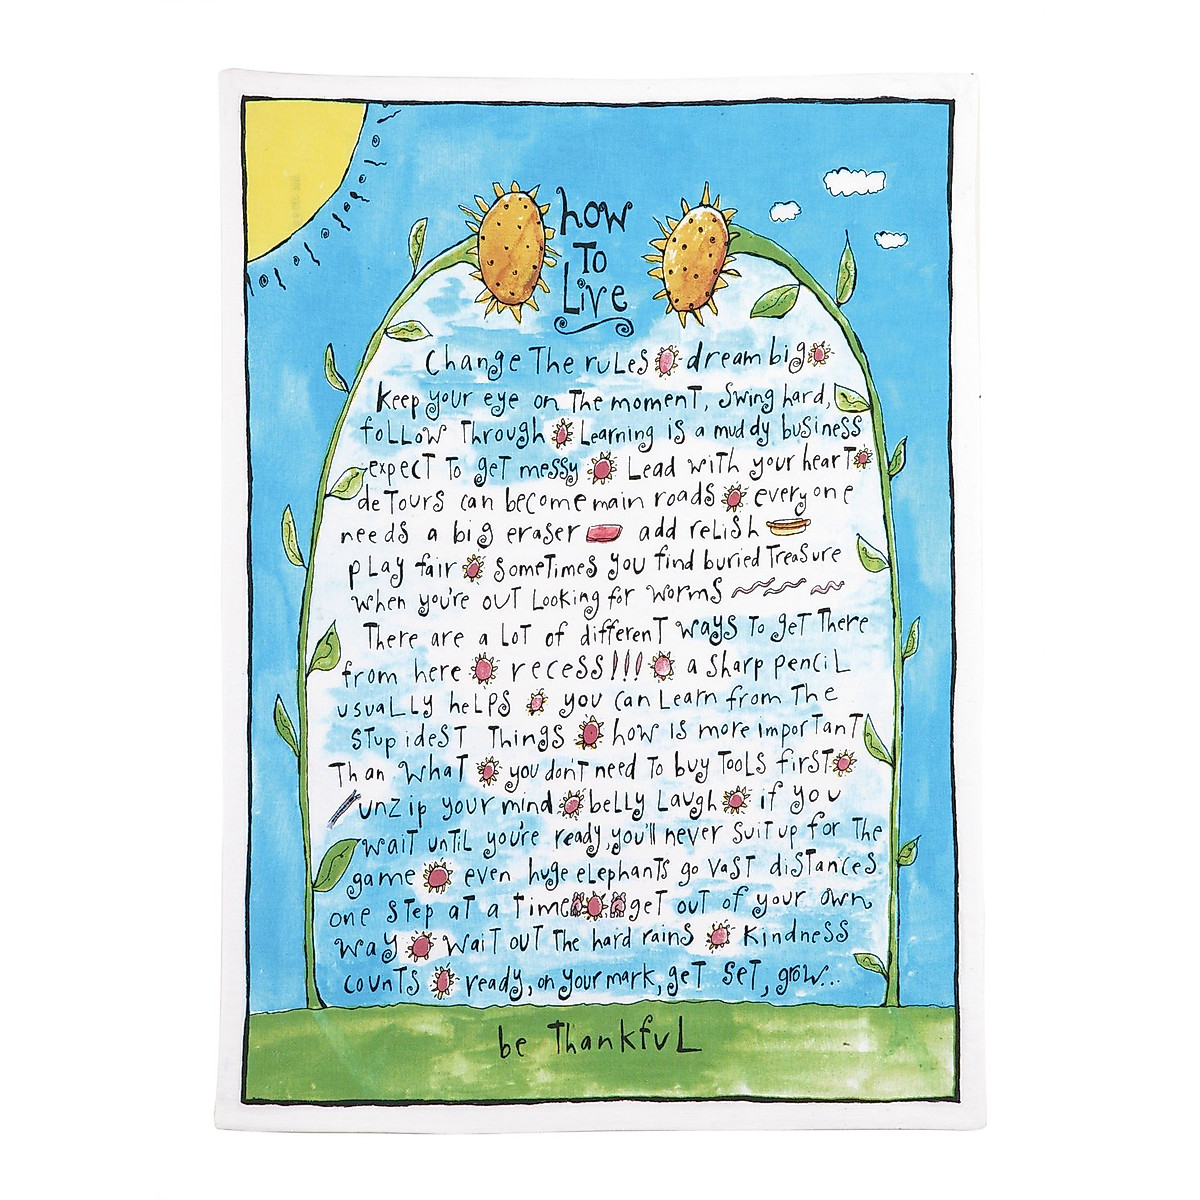 how
To
Live
Change The rules dream big
Keep your eye on The moment, Swing hard,
follow Through Learning is a muddy business
expect To get messy Lead with your heart
detours can become main roads everyone
needs a big eraser add relish
play fair sometimes you find buried Treasure
when you're out Looking for worms
There are a Lot of different ways To get There
from here recess!!! a sharp pencil
usually helps you can Learn from The
stupidest Things how is more important
Than what you don't need To buy Tools first
unzip your mind belly Laugh if you
wait until you're ready, you'll never suit up for The
game even huge elephants go vast distances
one step at a time get out of your own
way wait out The hard rains Kindness
counts ready, on your mark, get set, grow...
be Thankful